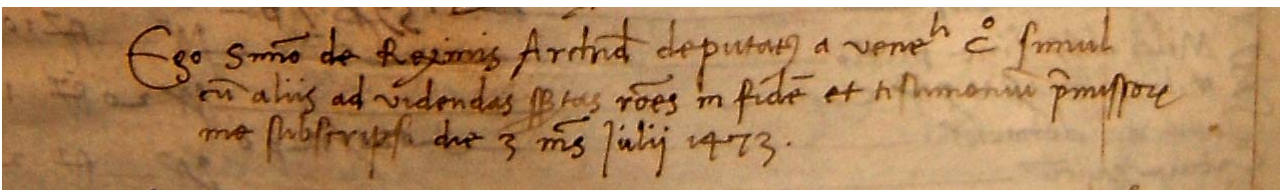 Ego Simõ de Reginis Archid̃ deputatꝰ a veneˡⁱ c° simul
cũ aliis ad videndas sp̃tas rões in fidẽ et testimoniũ p̃missorꝝ
me subscripsi die 3 mẽs Julii 1473.